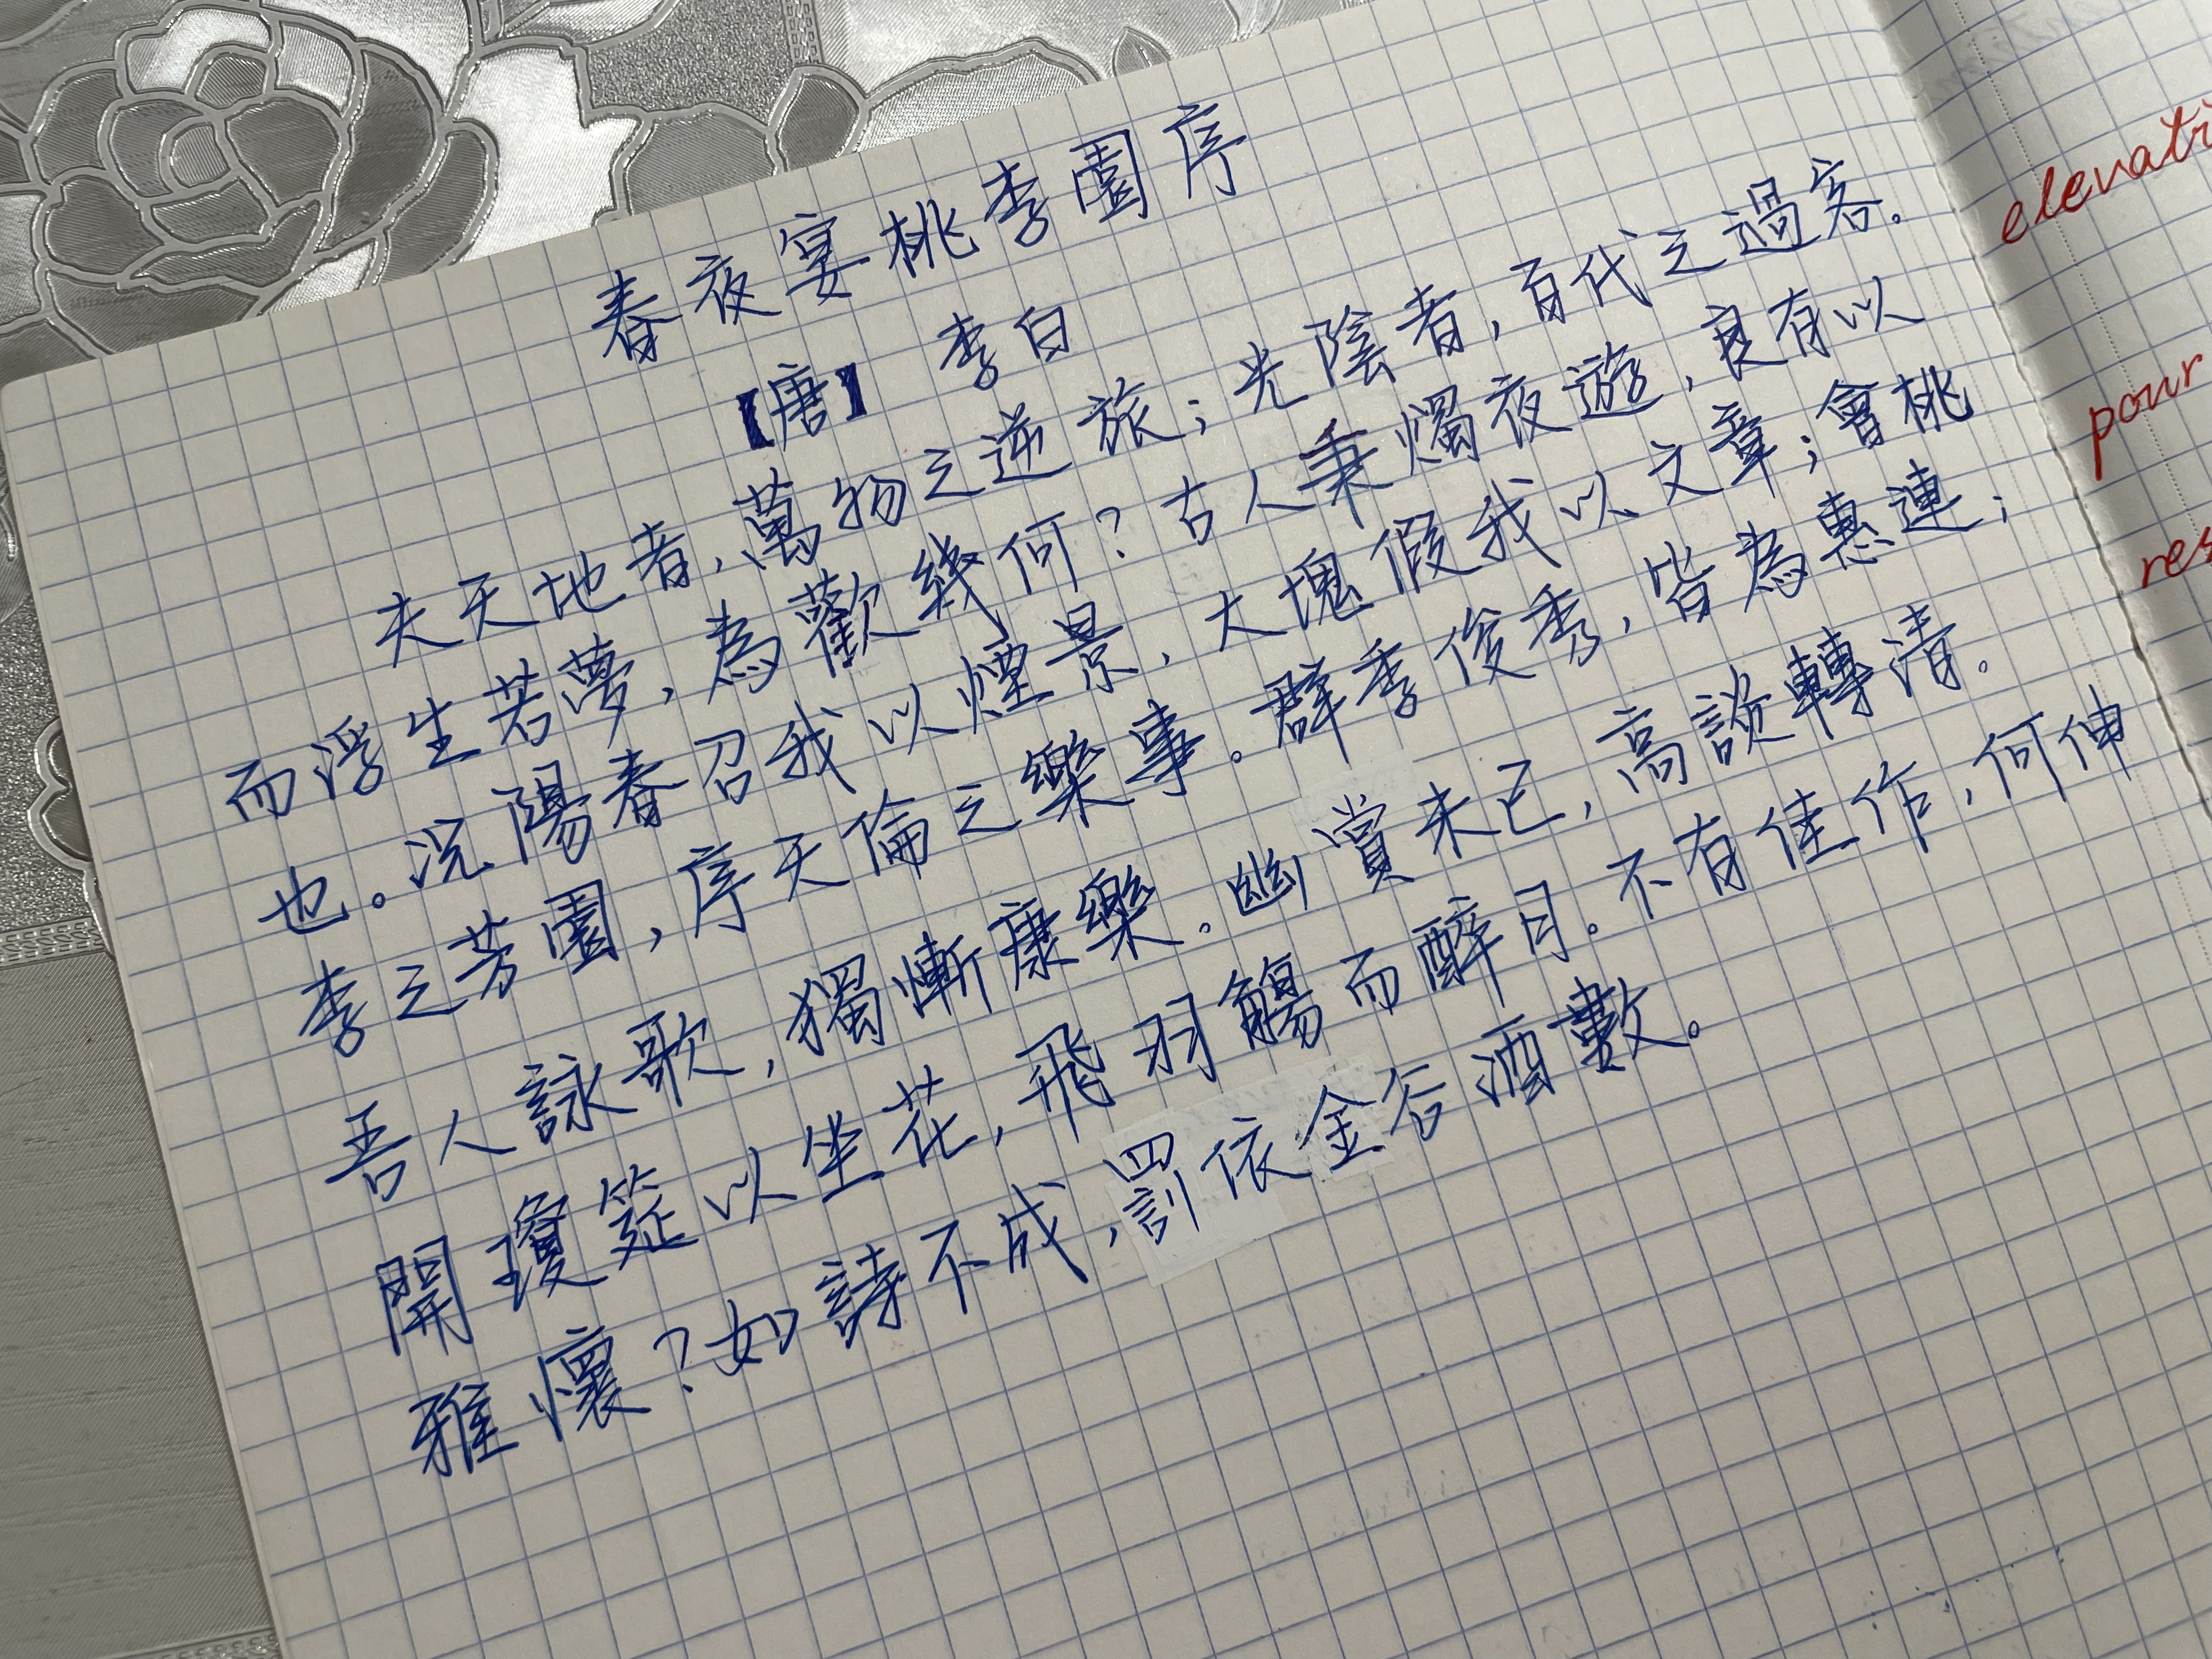 春夜宴桃李園序
【唐】 李白
夫天地者，萬物之逆旅；光陰者，百代之過客。
而浮生若夢，為歡幾何？古人秉燭夜遊，良有以
也。況陽春召我以煙景，大塊假我以文章；會桃
李之芳園，序天倫之樂事。群季俊秀，皆為惠連；
吾人詠歌，獨慚康樂。幽賞未已，高談轉清。
開瓊筵以坐花，飛羽觴而醉月。不有佳作，何伸
雅懷？如詩不成，罰依金谷酒數。
pour